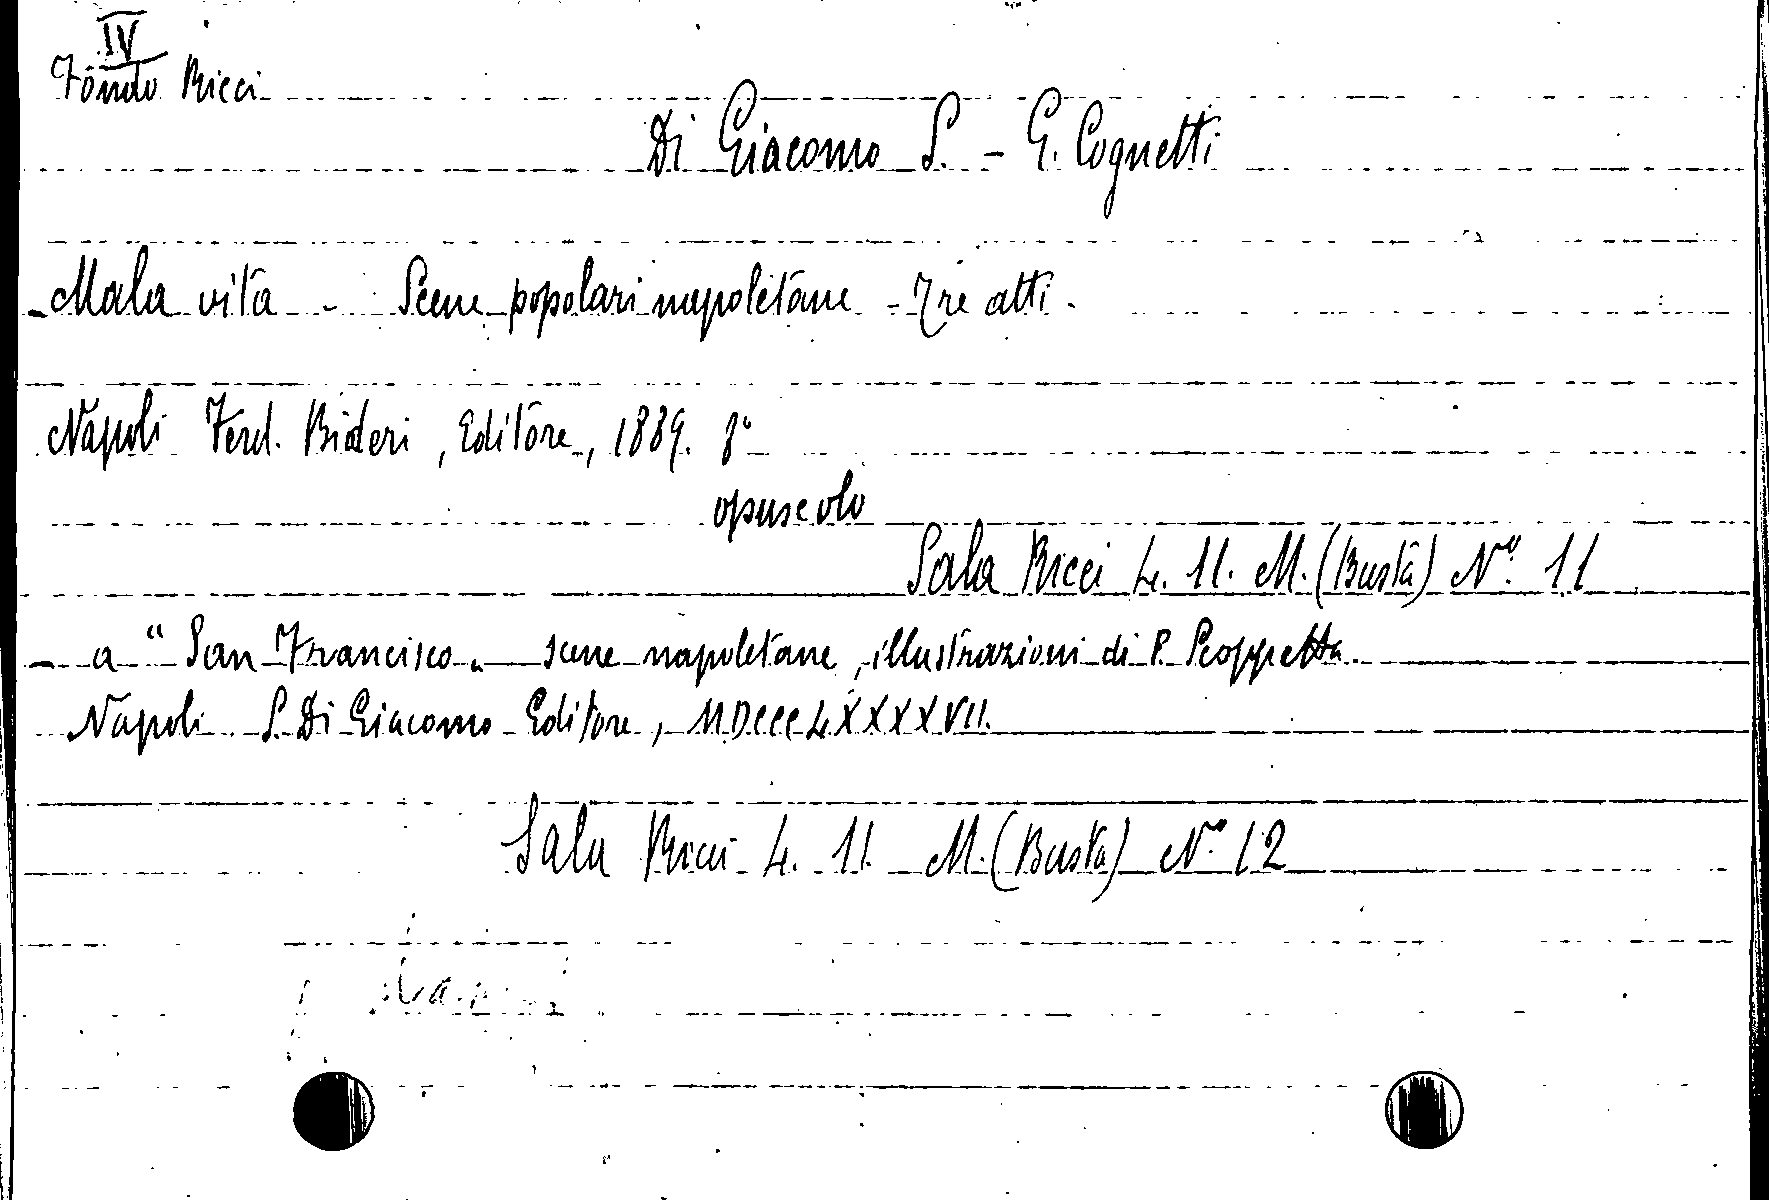 IV
Fondo Ricci
Di Giacomo S. - G. Cognetti
- Mala vita - Scene popolari napoletane - Tre atti.
Napoli Ferd. Bideri, Editore, 1889. 8°
opuscolo
Sala Ricci L. 11. M. (Busta) N.° 11
- a "San Francisco" scene napoletane, illustrazioni di P. Scoppetta.
Napoli S. Di Giacomo Editore, MDCCCLXXXXVII.
Sala Ricci L. 11. M. (Busta) N.° 12